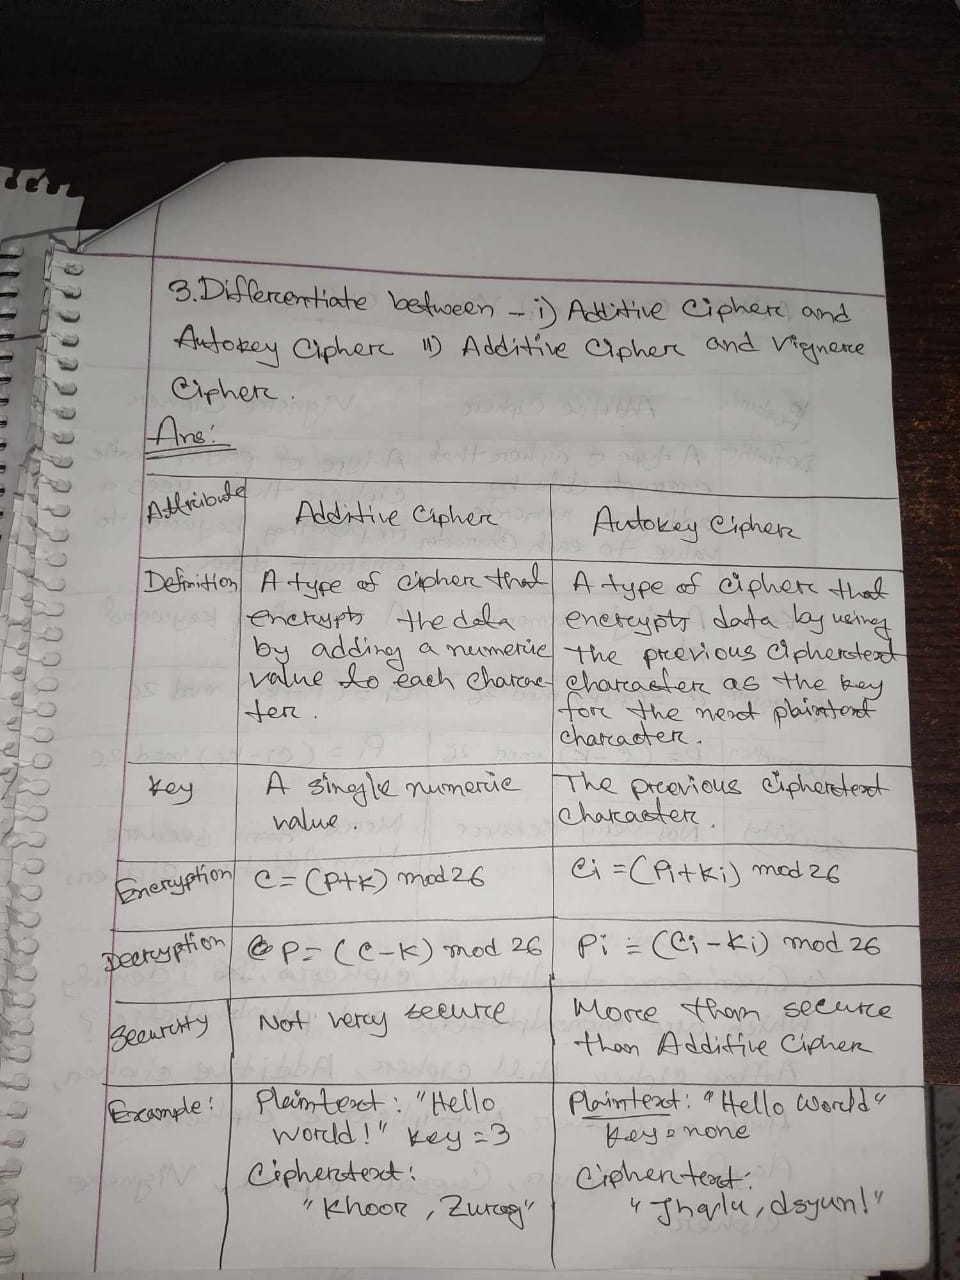 3. Differentiate between - i) Additive Cipher and
Autokey Cipher ii) Additive Cipher and Vignere
Cipher.
Ans:
Attribute
Additive Cipher
Autokey Cipher
Definition
A type of cipher that
encrypts the data
by adding a numeric
value to each charac-
ter.
A type of cipher that
encrypts data by using
the previous ciphertext
character as the key
for the next plaintext
character.
Key
A single numeric
value.
The previous ciphertext
character.
Encryption
C = (P+K) mod 26
Ci = (Pi+Ki) mod 26
Decryption
P = (C-K) mod 26
Pi = (Ci - Ki) mod 26
Security
Not very secure
More than secure
than Additive Cipher
Example:
Plaintext: "Hello
World!" Key = 3
Ciphertext:
"Khoor, Zurog"
Plaintext: "Hello World"
Key = none
Ciphertext: